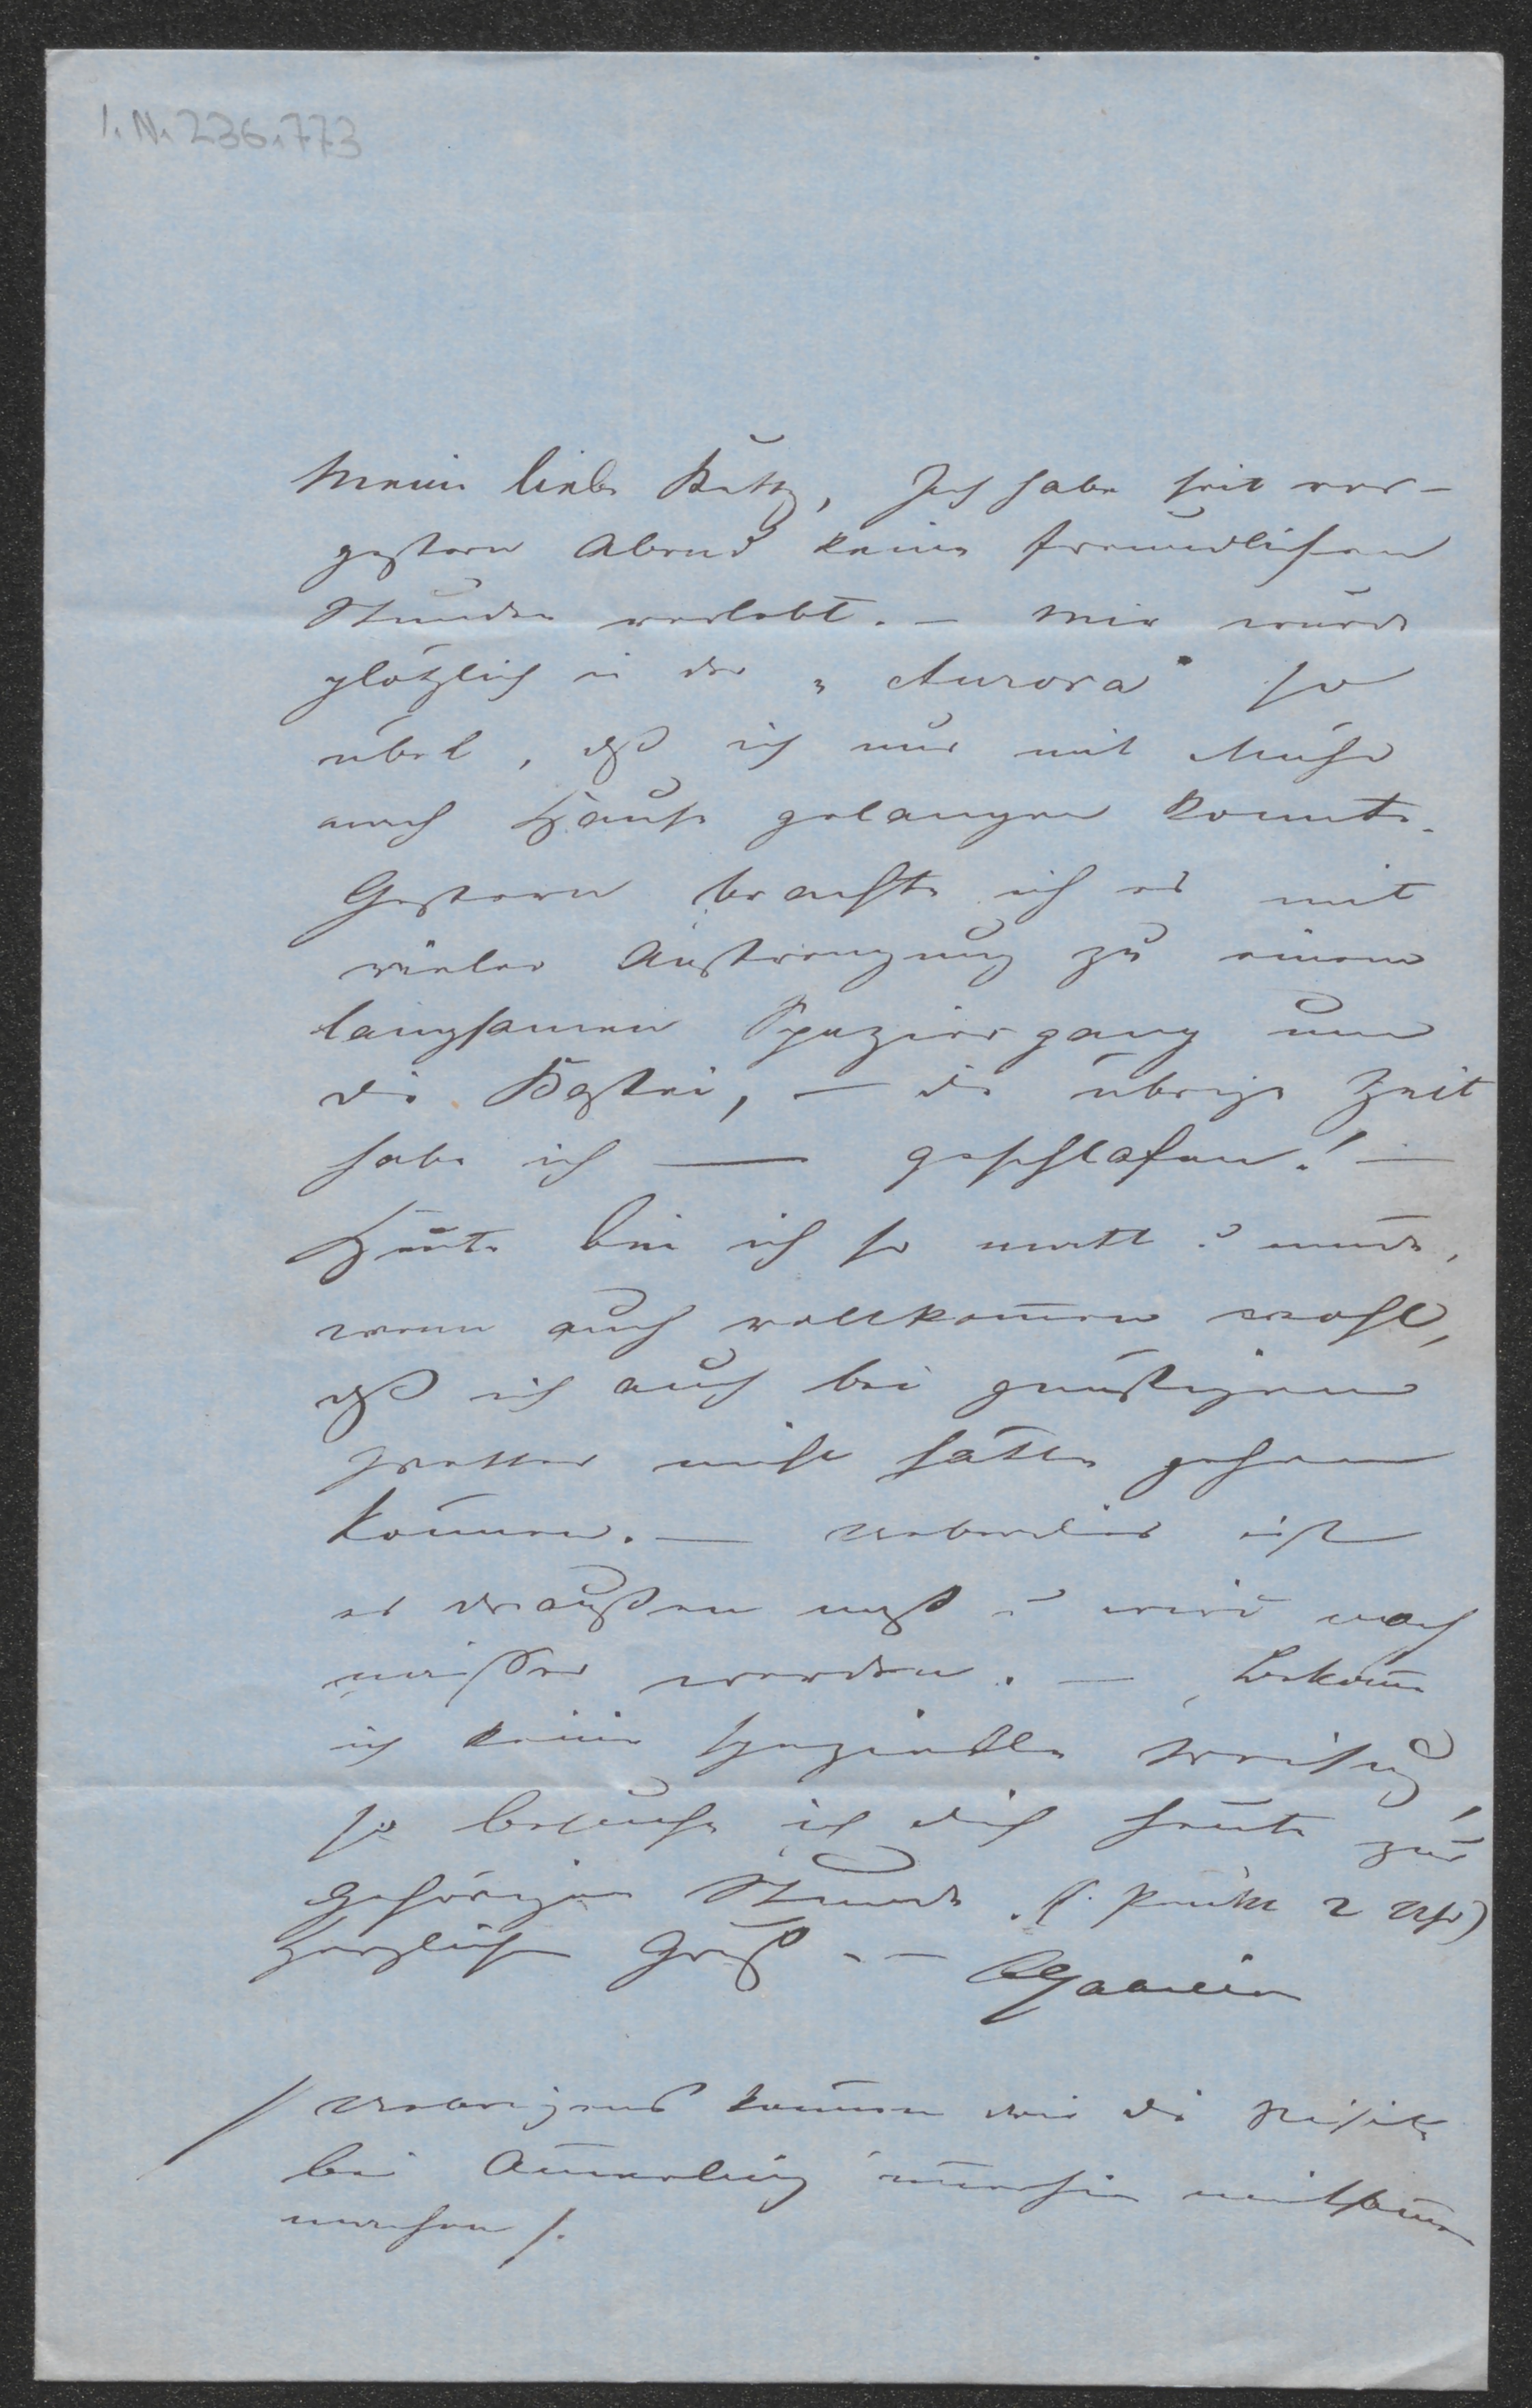 I. N. 236.773
Meine liebe Betty, Ich habe seit vor-
gestern Abend keine freundlichen
Stunden verlebt. – Mir wurde
plötzlich in der „Aurora" so
übel, dß ich nur mit Mühe
nach Hause gelangen konnte.
Gestern brachte ich es mit
vieler Anstrengung zu einem
langsamen Spaziergang um
die Bastei, – die übrige Zeit
habe ich — geschlafen! –
Heute bin ich so matt u müde,
wenn auch vollkom̅en wohl,
dß ich auch bei günstigem
Wetter nicht hätte gehen
können. — Ueberdies ist
es draußen naß u wird noch
nässer werden. – Bekom̅e
ich keine spezielle Weisung,
so besuche ich dich heute zur
gehörigen Stunde. (: Punkt 2 Uhr)
Herzlichen Gruß. –
/ Uebrigens können wir die Visite
bei Am̅erling im̅erhin mitsam̅en
machen /.